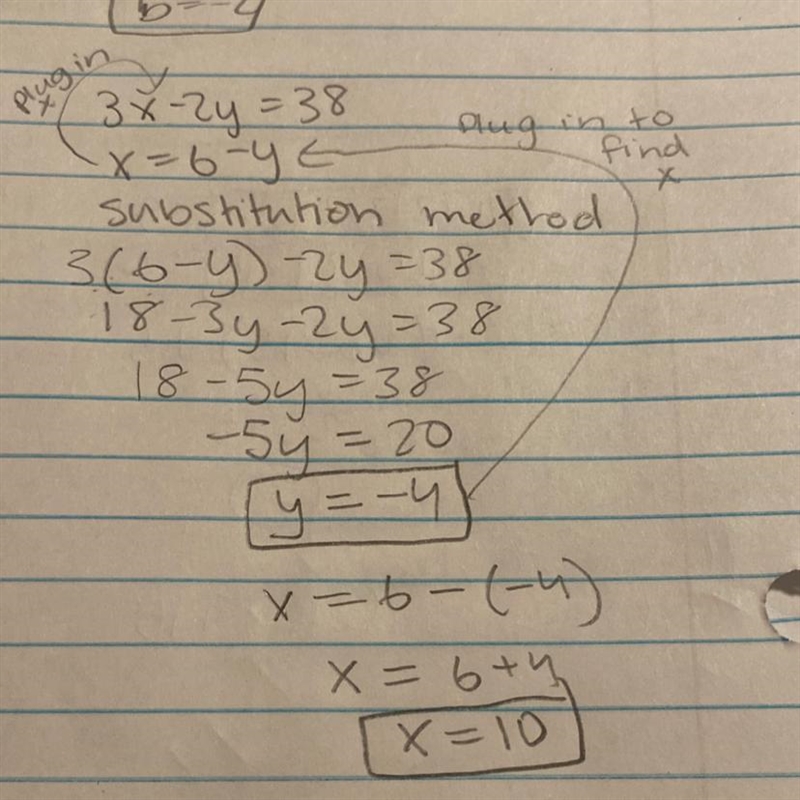 b=-4
plug in
x
3x-2y=38
plug in to
find
x
x=6-y
substitution method
3(6-y)-2y=38
18-3y-2y=38
18-5y=38
-5y=20
y=-4
x=6-(-4)
x=6+4
x=10